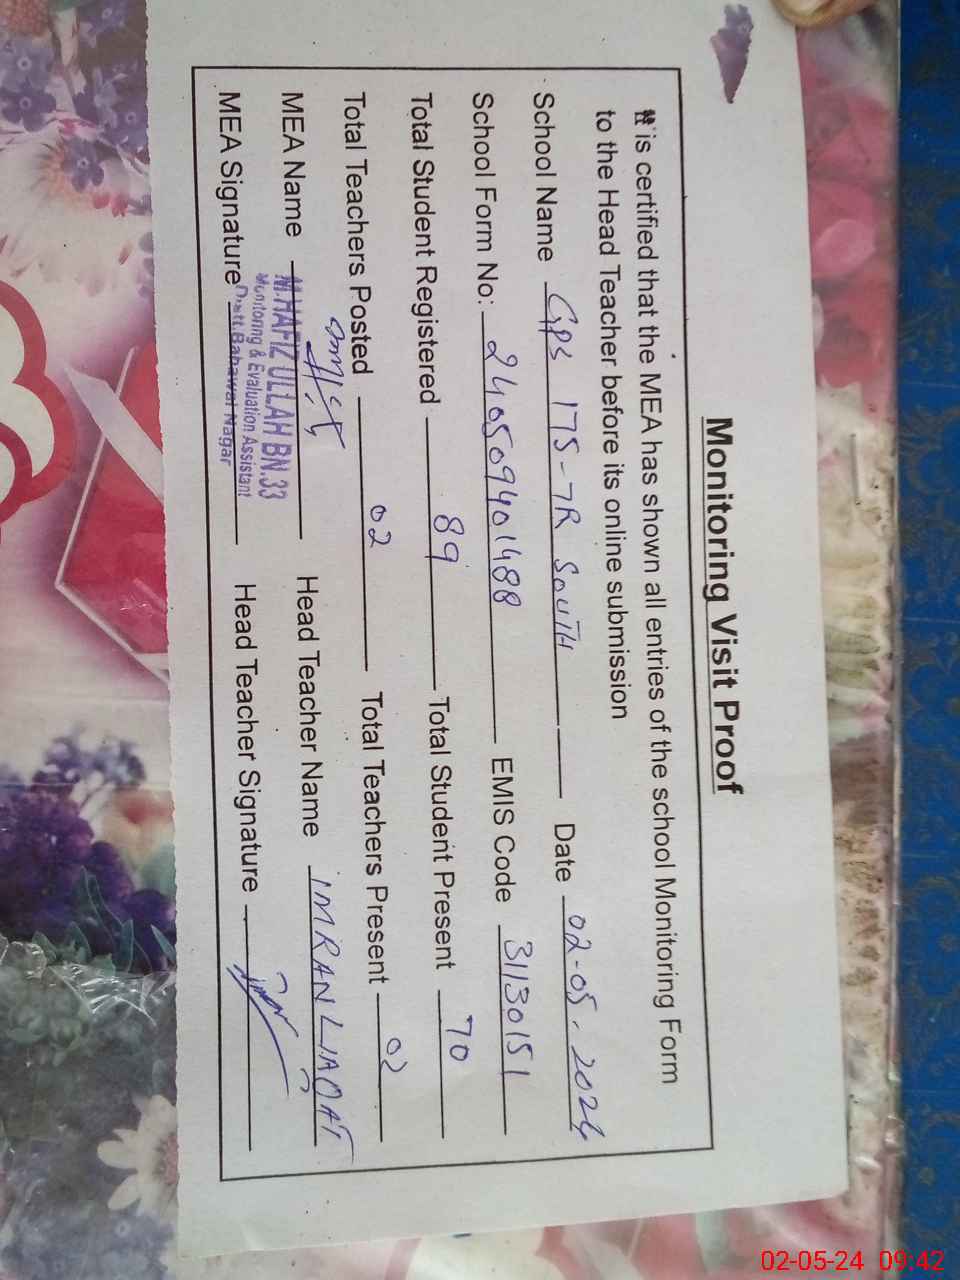 Monitoring Visit Proof
It is certified that the MEA has shown all entries of the school Monitoring Form
to the Head Teacher before its online submission
School Name GPS 175-7R SOUTH Date 02-05-2024
School Form No: 240509401488 EMIS Code 31130151
Total Student Registered 89 Total Student Present 70
Total Teachers Posted 02 Total Teachers Present 02
MEA Name M.HAFIZ ULLAH BN.33 Head Teacher Name IMRAN LIAQAT
Monitoring & Evaluation Assistant
MEA Signature Distt.Bahawal Nagar Head Teacher Signature
02-05-24 09:42